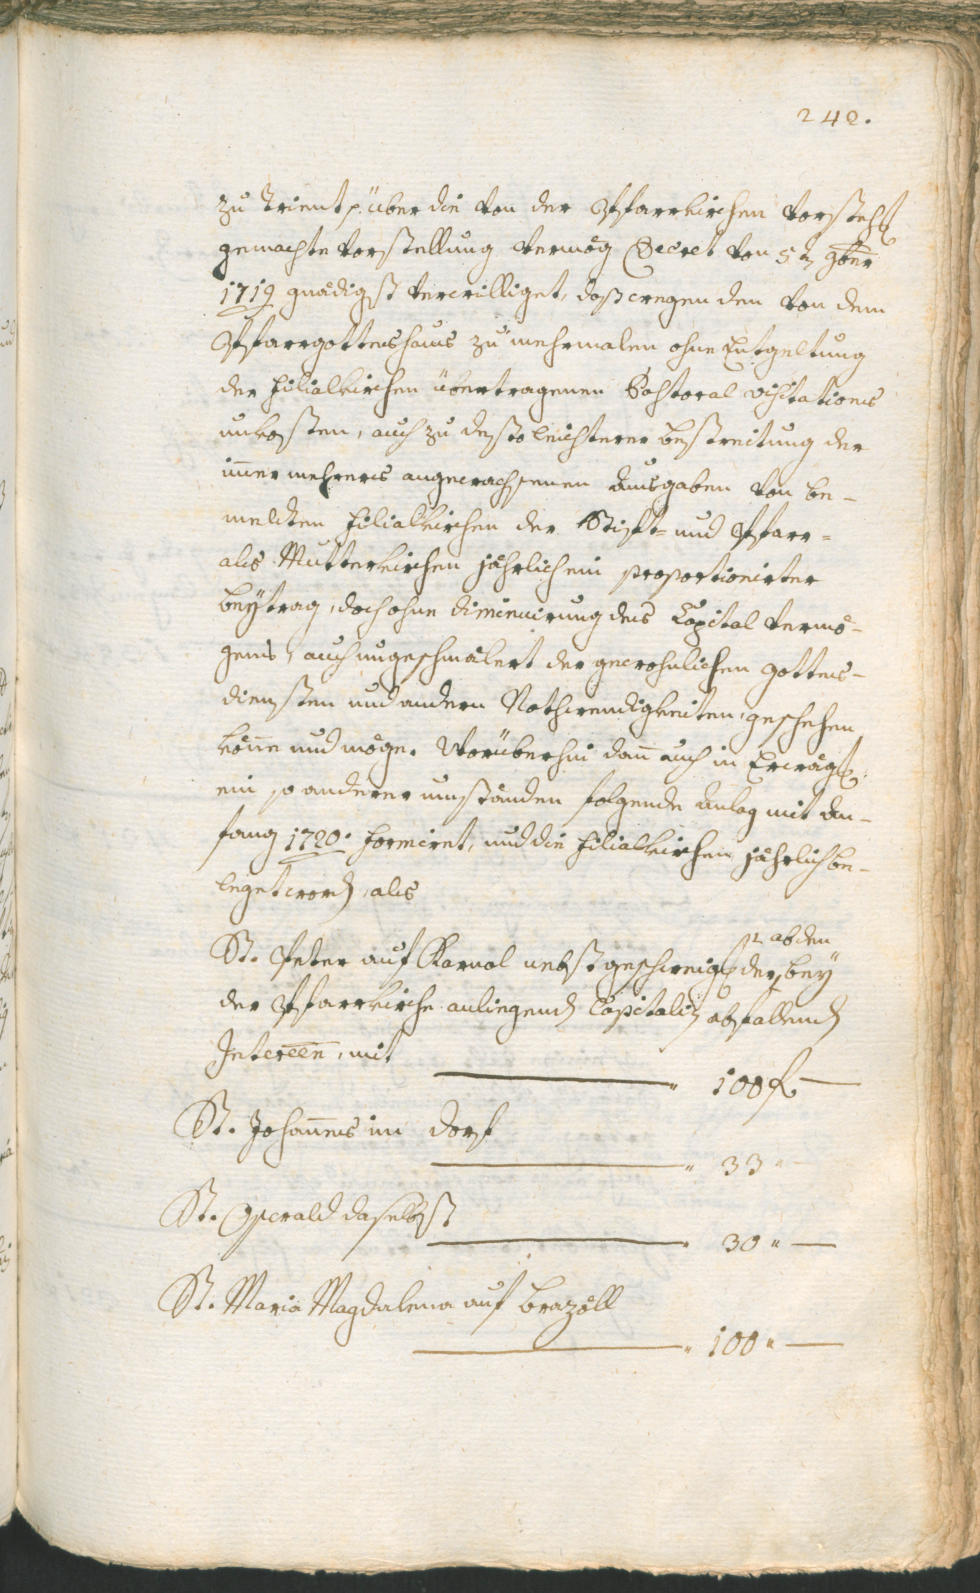 242.
zu Trient p. über die von der Pfarrkirchen Vorstehg
gemachte Vorstellung vermög Decret von 5tn 9ber
1719 gnädigst verwilliget, daß wegen den von dem
Pfarrgotteshaus zu mehrmalen ohne Entgeltung
der Filialkirchen übertragenen Pastoral Visitations
unkosten, auch zu desto leichterer bestreitung der
immer mehrers angewachsenen Ausgaben von be-
melten Filialkirchen der Stift- und Pfarr-
als Mutterkirchen jährlich ein proportionirter
beytrag, doch ohne diminuirung des Capital vermö-
gens, auch ungeschmälert der gewohnlichen Gottes-
diensten und andern Nothwendigkeiten, geschehen
köne und möge. Worüberhin dan auch in Erwägg
ein so anderer umständen folgende Anlag mit An-
fang 1720. formirt, und die Filialkirchen jährlich be-
leget word, als
St. Peter auf Karnol nebst geschweigg der bey
ab den
der Pfarrkirche anliegend Capitalien abfallend
Intereen, mit
100 f. —
St. Johannes im Dorf
33 " —
St. Oswald daselbst
30 " —
St. Maria Magdalena auf Brazöll
100 " —